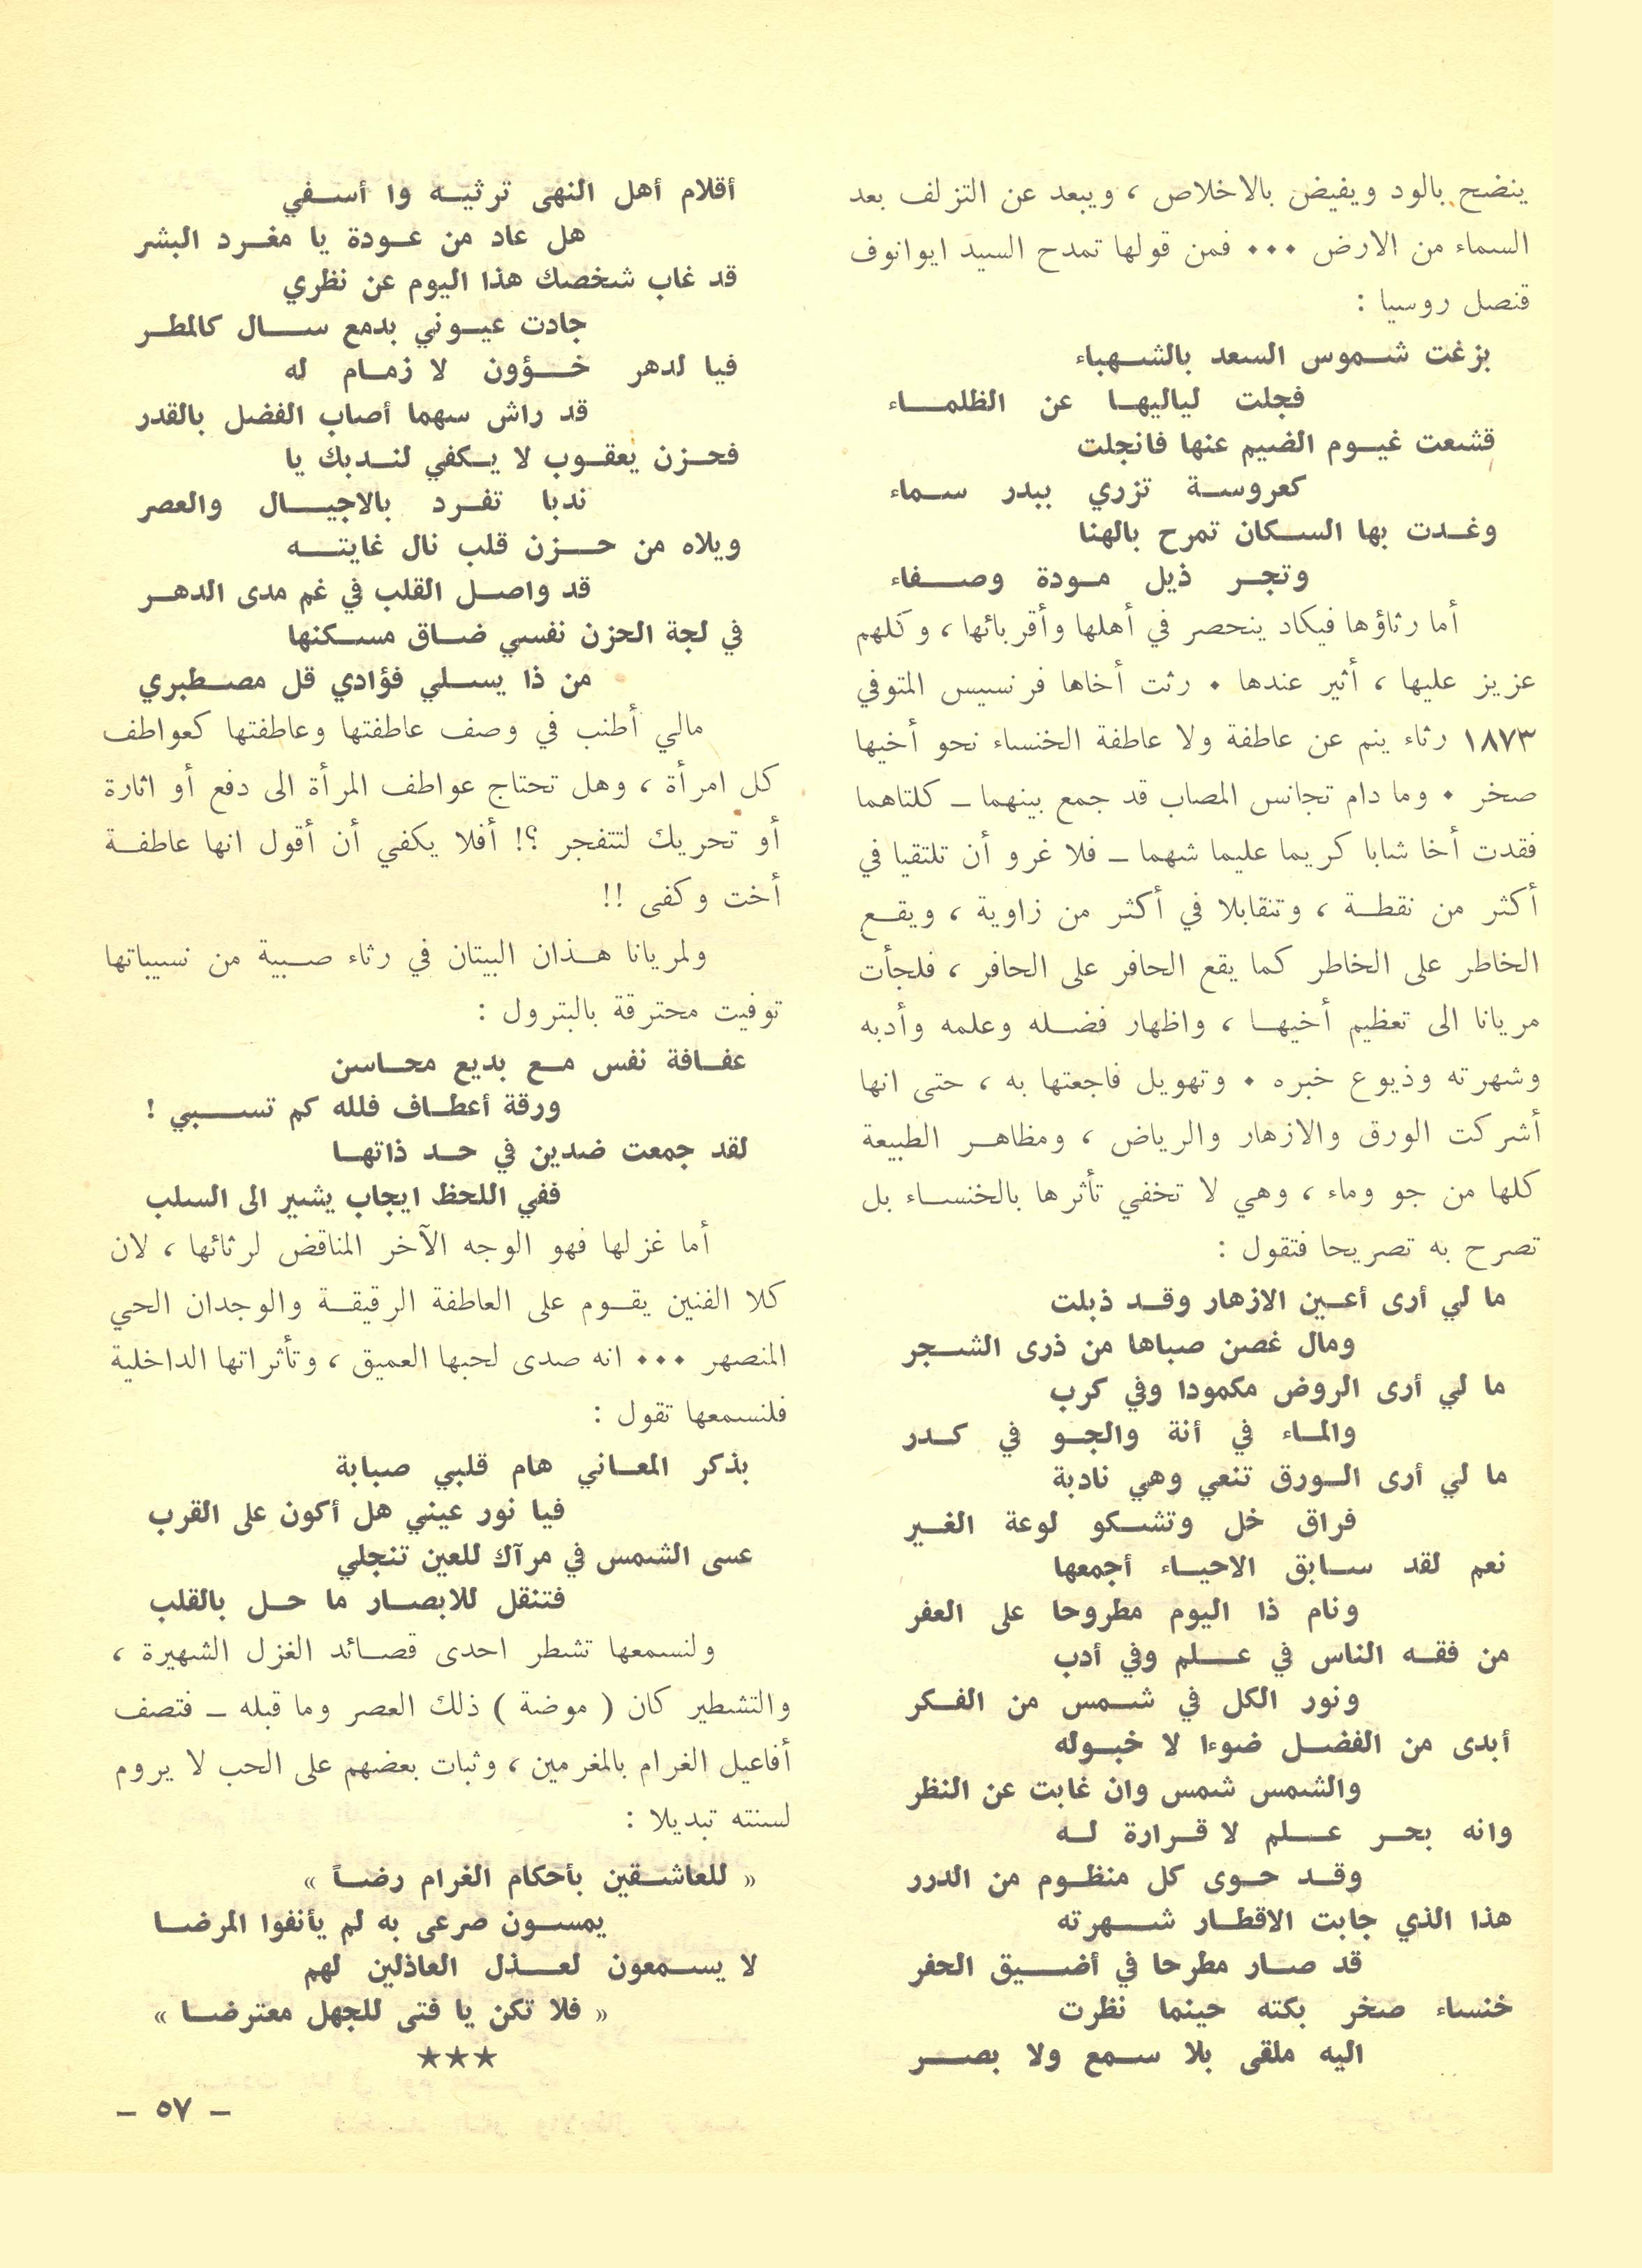 ينضح بالود ويفيض بالاخلاص ، ويبعد عن التزلف بعد
السماء من الارض ٠٠٠ فمن قولها تمدح السيد ايوانوف
قنصل روسيا :
بزغت شموس السعد بالشهباء
فجلت لياليها عن الظلماء
قشعت غيوم الضيم عنها فانجلت
كعروسة تزري ببدر سماء
وغدت بها السكان تمرح بالهنا
وتجر ذيل مودة وصفاء
أما رثاؤها فيكاد ينحصر في أهلها وأقربائها ، وكلهم
عزيز عليها ، أثير عندها ٠ رثت أخاها فرنسيس المتوفي
١٨٧٣ رثاء ينم عن عاطفة ولا عاطفة الخنساء نحو أخيها
صخر ٠ وما دام تجانس المصاب قد جمع بينهما ــ كلتاهما
فقدت أخا شابا كريما عليما شهما ــ فلا غرو أن تلتقيا في
أكثر من نقطة ، وتتقابلا في أكثر من زاوية ، ويقع
الخاطر على الخاطر كما يقع الحافر على الحافر ، فلجأت
مريانا الى تعظيم أخيها ، واظهار فضله وعلمه وأدبه
وشهرته وذيوع خبره ٠ وتهويل فاجعتها به ، حتى انها
أشركت الورق والازهار والرياض ، ومظاهر الطبيعة
كلها من جو وماء ، وهي لا تخفي تأثرها بالخنساء بل
تصرح به تصريحا فتقول :
ما لي أرى أعين الازهار وقد ذبلت
ومال غصن صباها من ذرى الشجر
ما لي أرى الروض مكمودا وفي كرب
والماء في أنة والجو في كدر
ما لي أرى الورق تنعي وهي نادبة
فراق خل وتشكو لوعة الغير
نعم لقد سابق الاحياء أجمعها
ونام ذا اليوم مطروحا على العفر
من فقه الناس في علم وفي أدب
ونور الكل في شمس من الفكر
أبدى من الفضل ضوءا لا خبوله
والشمس شمس وان غابت عن النظر
وانه بحر علم لا قرارة له
وقد حوى كل منظوم من الدرر
هذا الذي جابت الاقطار شهرته
قد صار مطرحا في أضيق الحفر
خنساء صخر بكته حينما نظرت
اليه ملقى بلا سمع ولا بصر
أقلام أهل النهى ترثيه وا أسفي
هل عاد من عودة يا مغرد البشر
قد غاب شخصك هذا اليوم عن نظري
جادت عيوني بدمع سال كالمطر
فيا لدهر خؤون لا زمام له
قد راش سهما أصاب الفضل بالقدر
فحزن يعقوب لا يكفي لندبك يا
ندبا تفرد بالاجيال والعصر
ويلاه من حزن قلب نال غايته
قد واصل القلب في غم مدى الدهر
في لجة الحزن نفسي ضاق مسكنها
من ذا يسلي فؤادي قل مصطبري
مالي أطنب في وصف عاطفتها وعاطفتها كعواطف
كل امرأة ، وهل تحتاج عواطف المرأة الى دفع أو اثارة
أو تحريك لتتفجر ؟! أفلا يكفي أن أقول انها عاطفة
أخت وكفى !!
ولمريانا هذان البيتان في رثاء صبية من نسيباتها
توفيت محترقة بالبترول :
عفافة نفس مع بديع محاسن
ورقة أعطاف فلله كم تسبي !
لقد جمعت ضدين في حد ذاتها
ففي اللحظ ايجاب يشير الى السلب
أما غزلها فهو الوجه الآخر المناقض لرثائها ، لان
كلا الفنين يقوم على العاطفة الرقيقة والوجدان الحي
المنصهر ٠٠٠ انه صدى لحبها العميق ، وتأثراتها الداخلية
فلنسمعها تقول :
بذكر المعاني هام قلبي صبابة
فيا نور عيني هل أكون على القرب
عسى الشمس في مرآك للعين تنجلي
فتنقل للابصار ما حل بالقلب
ولنسمعها تشطر احدى قصائد الغزل الشهيرة ،
والتشطير كان ( موضة ) ذلك العصر وما قبله ــ فتصف
أفاعيل الغرام بالمغرمين ، وثبات بعضهم على الحب لا يروم
لسنته تبديلا :
« للعاشقين بأحكام الغرام رضاً »
يمسون صرعى به لم يأنفوا المرضا
لا يسمعون لعذل العاذلين لهم
« فلا تكن يا فتى للجهل معترضا »
★★★
– ٥٧ –